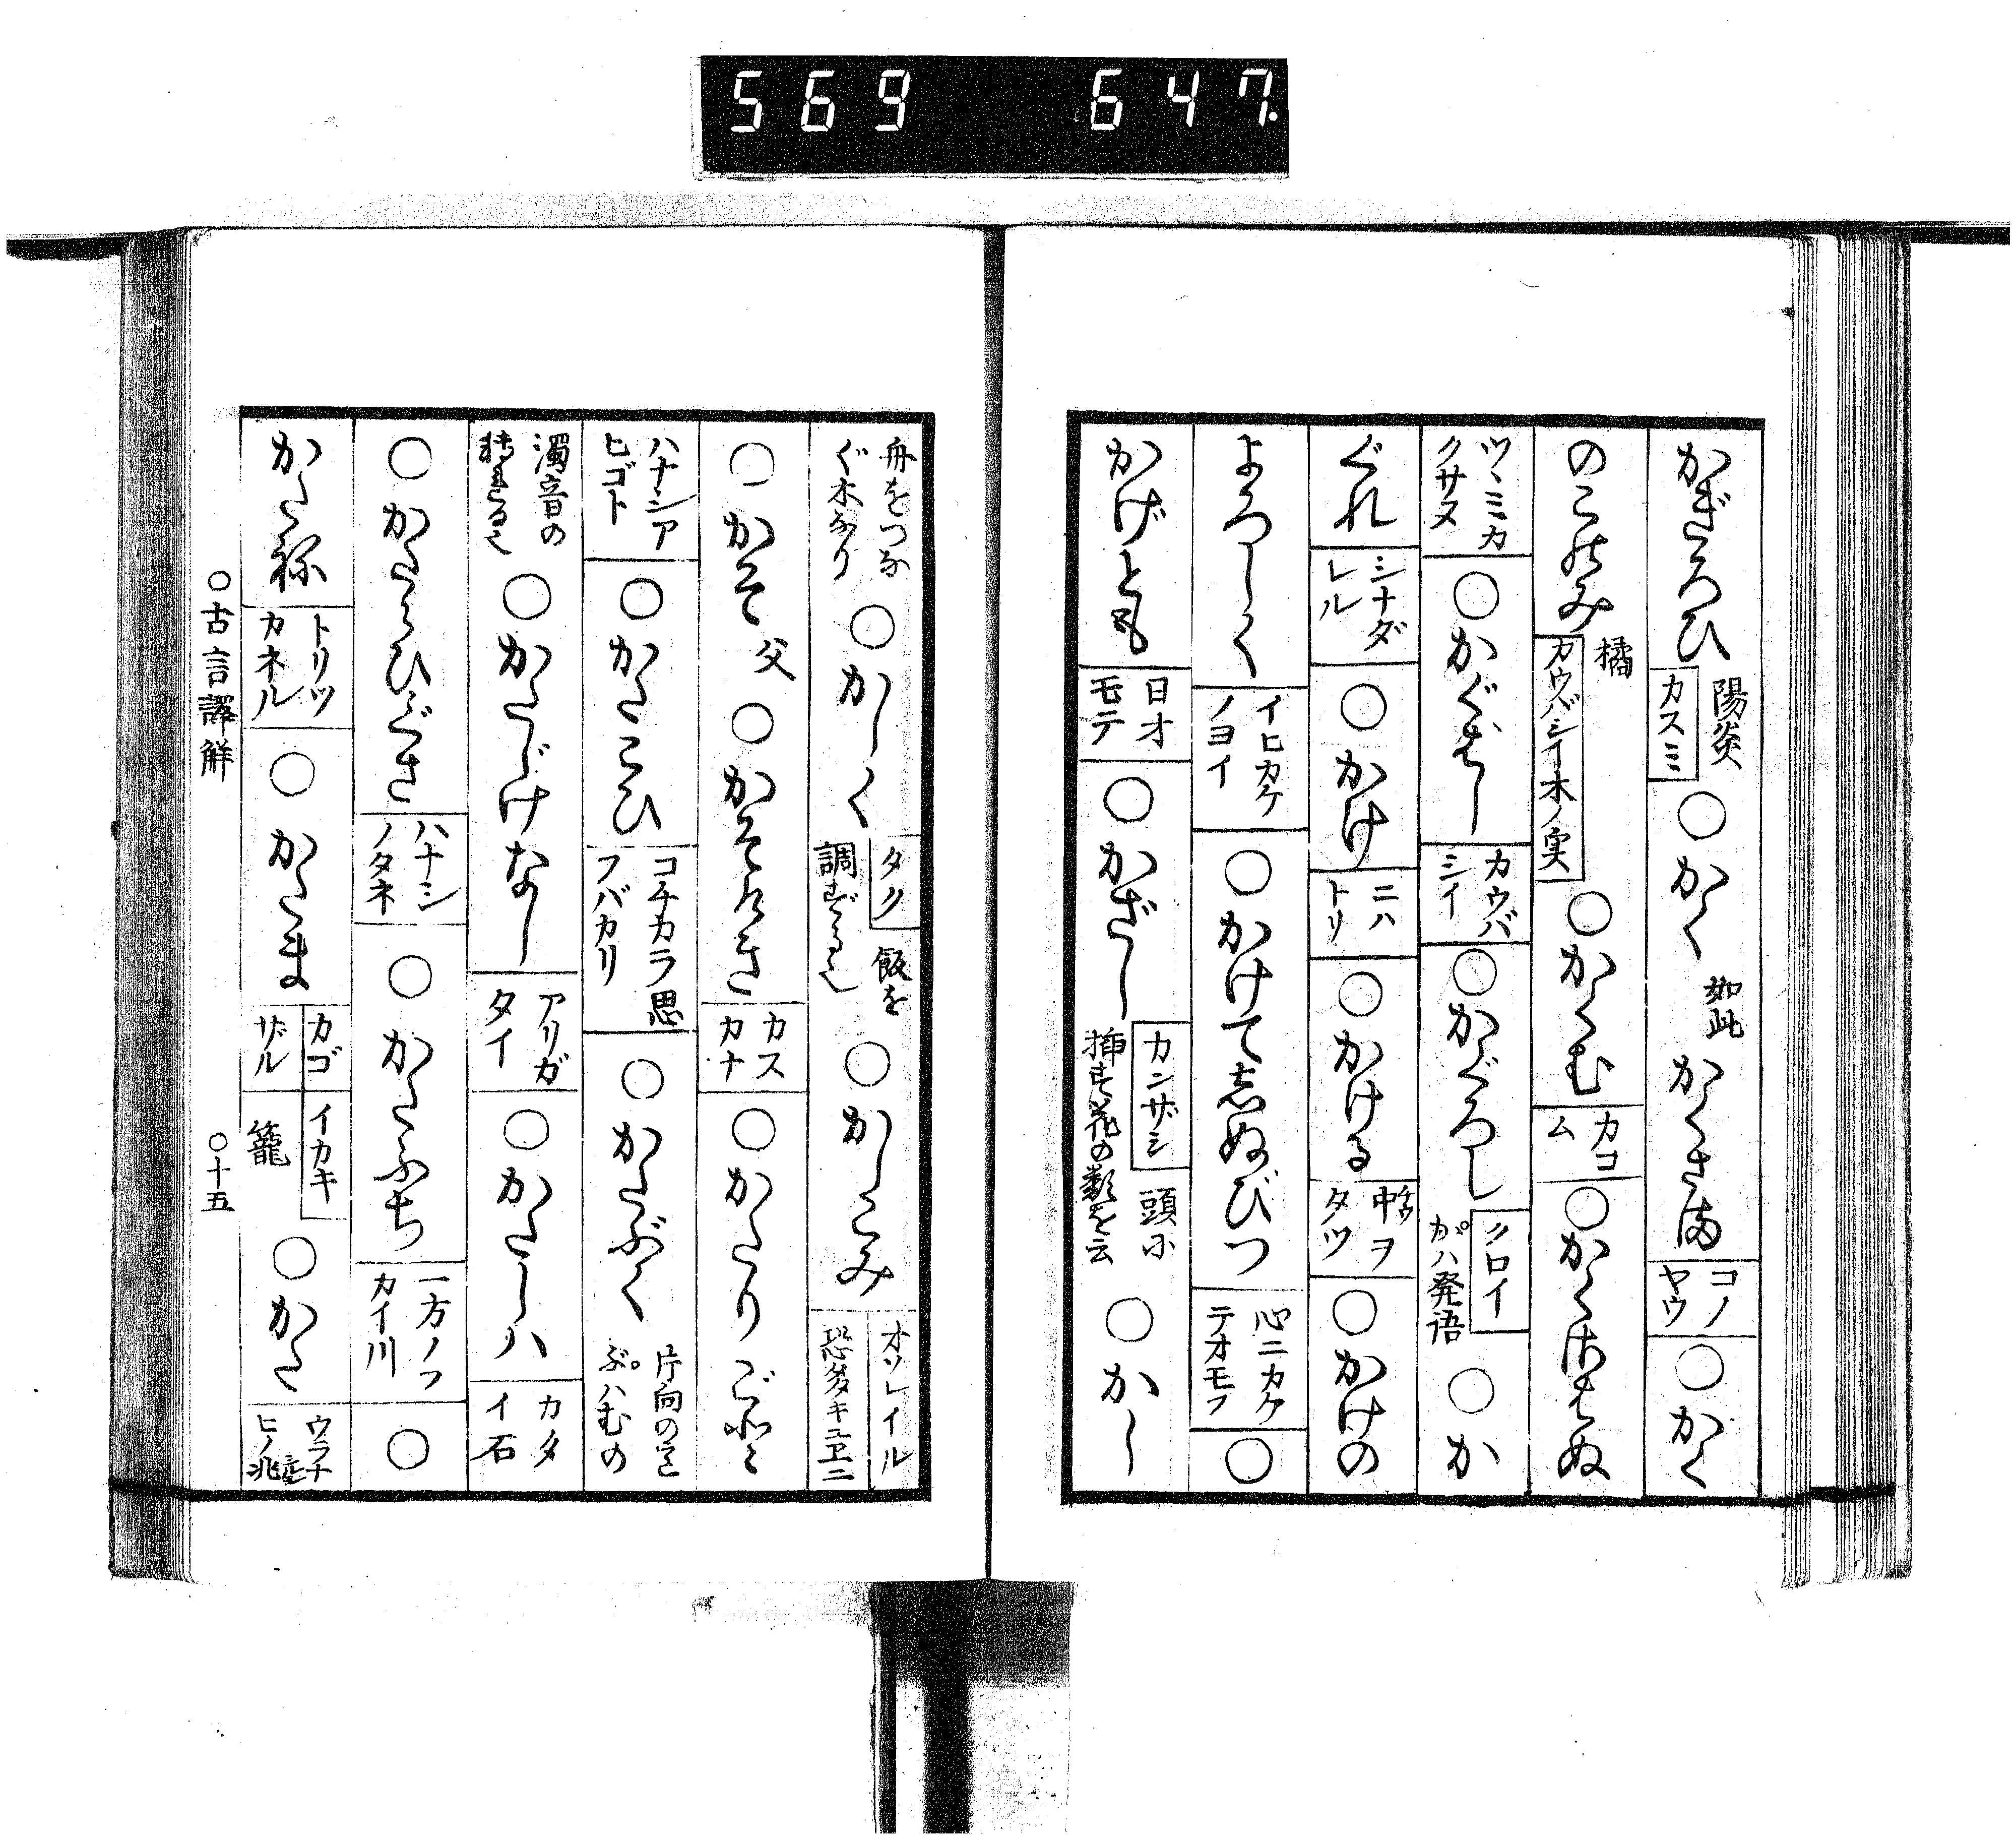 569 647.
かぎろひ 陽炎 カスミ ○かく 如此 かくさま コノヤウ ○かく
のこのみ 橘 カウバシイ木ノ実 ○かくむ カコム ○かくさはぬ
ツヽミカクサヌ ○かぐはし カウバシイ ○かぐろし クロイ カ゚ハ発語 ○か
ぐれ シナダレル ○かけ ニハトリ ○かける 中ヲタツ ○かけの
よろしく イヒカケノヨイ ○かけて志ぬびつ 心ニカケテオモフ ○
かげとも 日オモテ ○かざし カンザシ 頭に挿す花の類を云 ○かし
舟をつなぐ木なり ○かしく タク 飯を調ずる也 ○かしこみ オソレイル 恐多キニ
○かそ 父 ○かそけき カスカナ ○かたりごと
ハナシアヒゴト ○かたこひ コチカラ思フバカリ ○かたぶく 片向の言 ぶ゚ハむの
濁音の転れる也 ○かたじけなし アリガタイ ○かたしハ カタイ石
○かたらひぐさ ハナシノタネ ○かたふち 一方ノフカイ川 ○
かたね トリツカネル ○かたま カゴ ザル イカキ 籠 ○かた ウラナヒノ兆
○古言譯解 ○十五